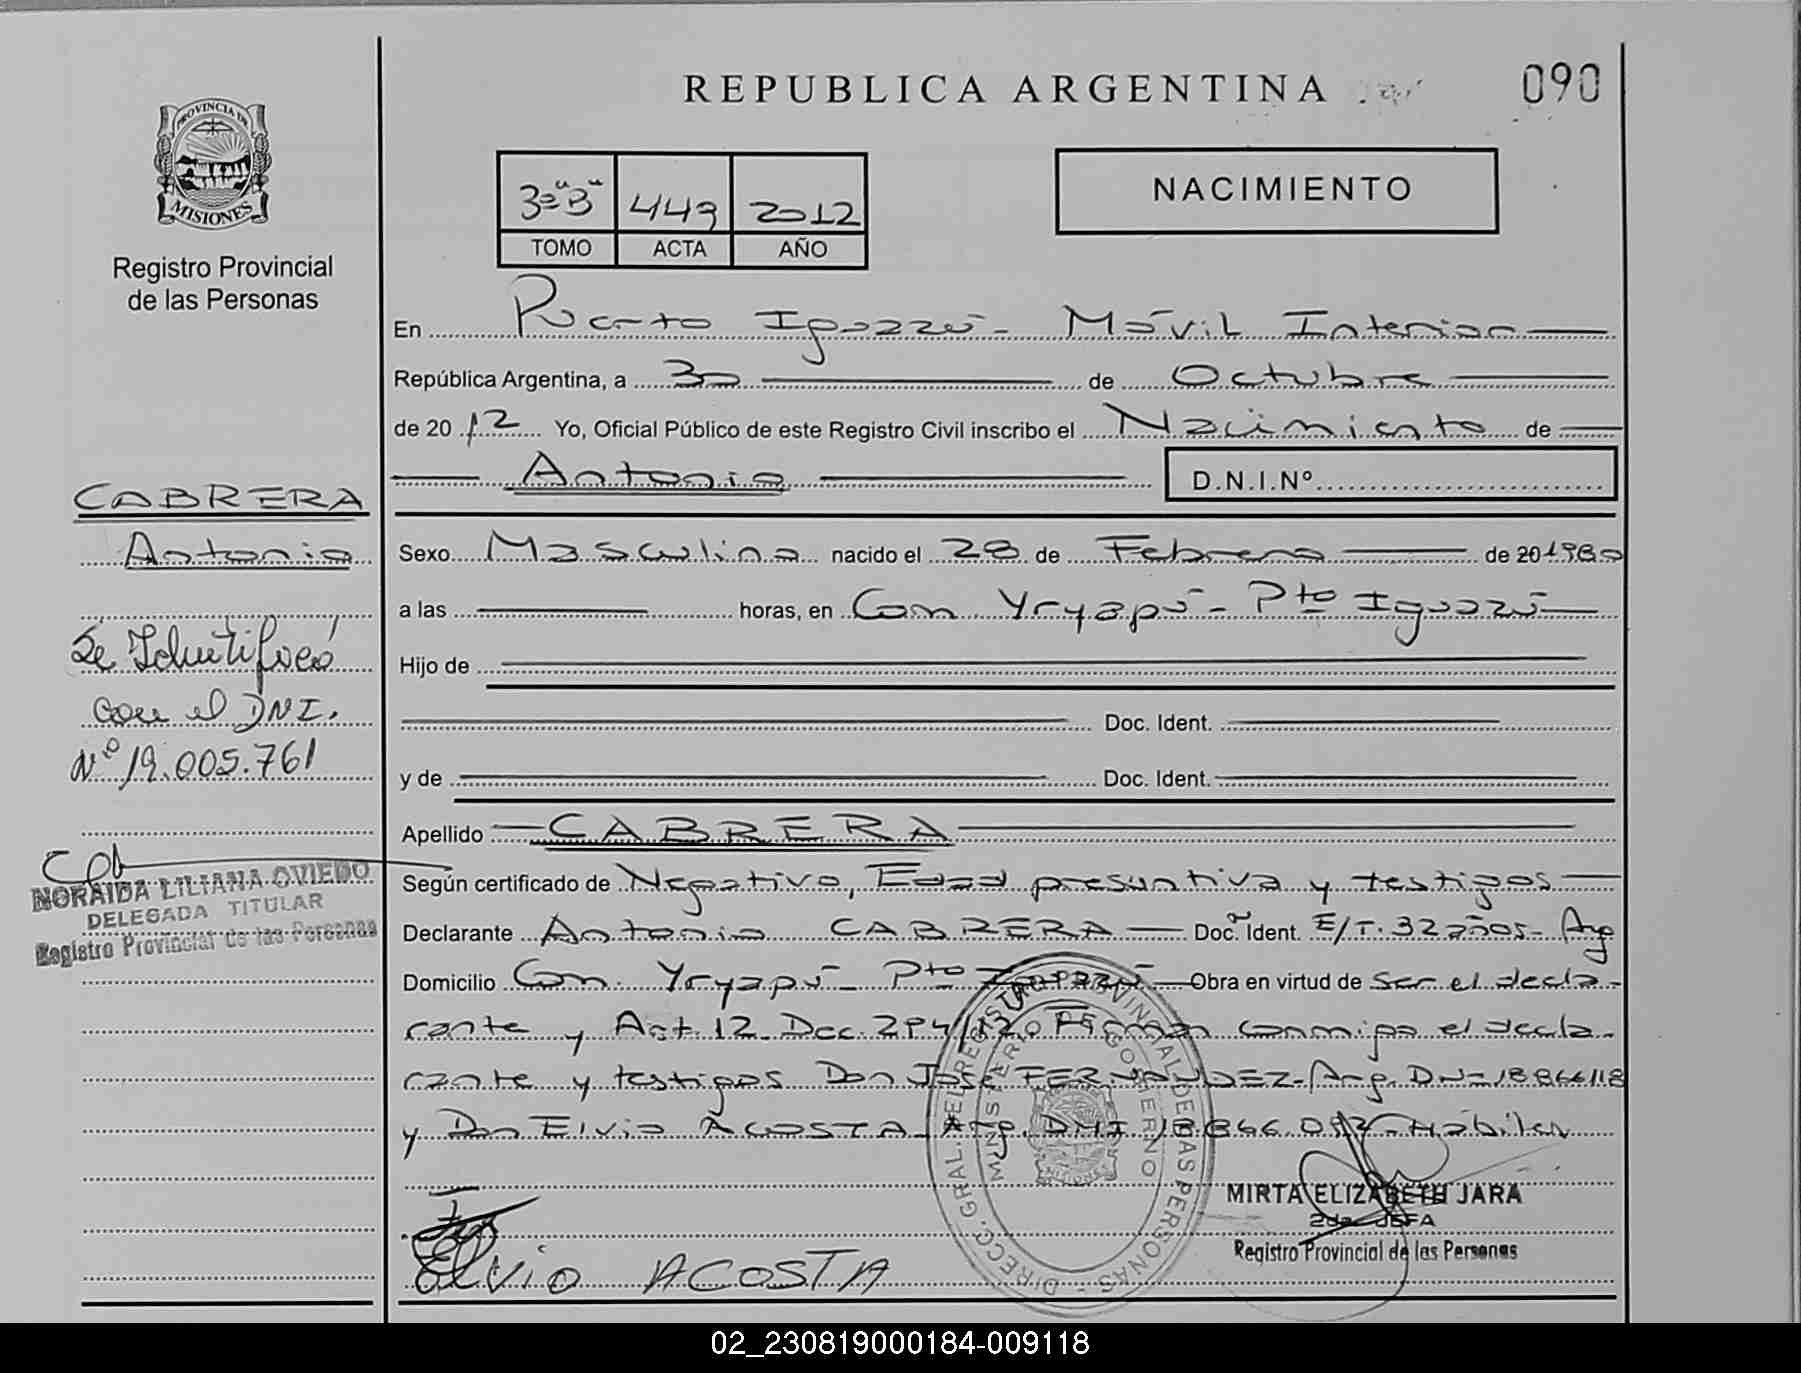 REPUBLICA ARGENTINA
090
PROVINCIA DE
MISIONES
Registro Provincial
de las Personas
3º "B" 449 2012
TOMO ACTA AÑO
NACIMIENTO
En Puerto Iguazú - Móvil Interior
República Argentina, a 30 de Octubre
de 2012 Yo, Oficial Público de este Registro Civil inscribo el Nacimiento de
Antonio D.N.I.Nº
CABRERA
Antonio
Se Identificó
con el DNI.
Nº 19.005.761
NORAIDA LILIANA OVIEDO
DELEGADA TITULAR
Registro Provincial de las Personas
Sexo Masculino nacido el 28 de Febrero de 20 1980
a las horas, en Com Yryapú - Pto Iguazú
Hijo de
Doc. Ident.
y de Doc. Ident.
Apellido CABRERA
Según certificado de Negativo, Edad presuntiva y testigos
Declarante Antonio CABRERA Doc. Ident. E/T. 32 años - Arg
Domicilio Com. Yryapú - Pto Iguazú Obra en virtud de ser el decla-
rante y Art. 12 Dec. 294/12. Firman conmigo el decla-
rante y testigos Don José FERNANDEZ - Arg. DNI 18866118
y Don Elvio ACOSTA - Arg. DNI 18.866.092 - Hábiles
Elvio ACOSTA
DIRECC. GRAL. DEL REGISTRO PROVINCIAL DE LAS PERSONAS
MINISTERIO DE GOBIERNO
MISIONES
MIRTA ELIZABETH JARA
2da JEFA
Registro Provincial de las Personas
02_230819000184-009118